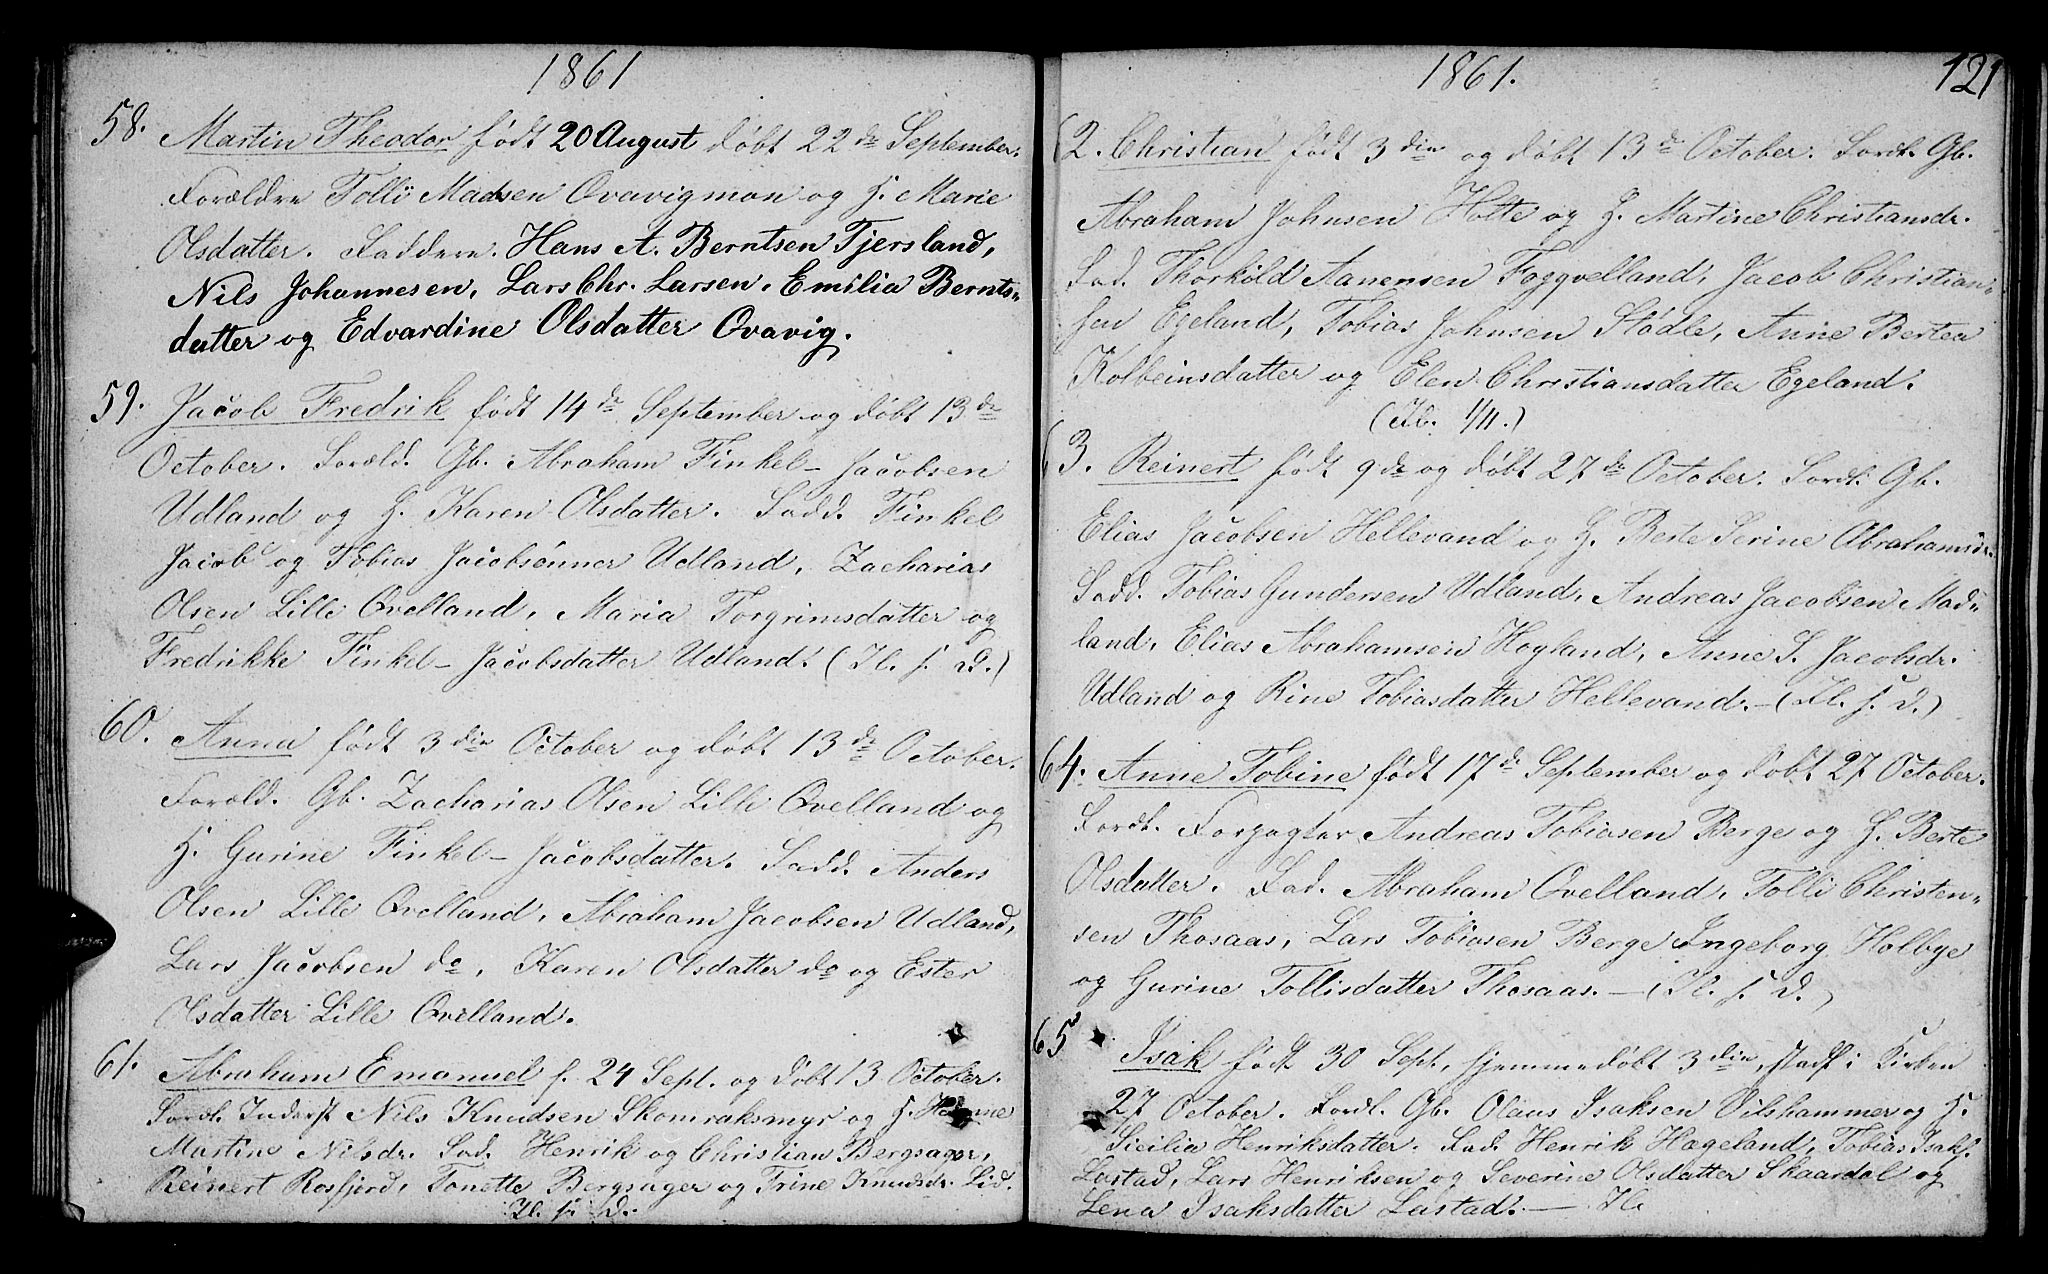 1861
58. Martin Theodor født 20 August døbt 22de September.
Forældre Tolli Madsen Ovavigmon og H. Marie
Olsdatter. Faddere. Hans A. Berntsen Tjersland,
Nils Johannesen, Lars Chr. Larsen, Emilia Bernts-
datter og Edvardine Olsdatter Ovavig.
59. Jacob Fredrik født 14de September og døbt 13de
October. Foræld. Gb. Abraham Finkel- Jacobsen
Udland og H. Karen Olsdatter. Fadd. Finkel
Jacob og Tobias Jacobsønner Udland, Zacharias
Olsen Lille Qvelland, Maria Torgrimsdatter og
Fredrikke Finkel- Jacobsdatter Udland. (Il. s. D.)
60. Anna født 3die October og døbt 13de October.
Foræld. Gb. Zacharias Olsen Lille Qvelland og
H. Gurine Finkel- Jacobsdatter. Fadd. Anders
Olsen Lille Qvelland, Abraham Jacobsen Udland,
Lars Jacobsen do, Karen Olsdatter do og Ester
Olsdatter Lille Qvelland.
61. Abraham Emanuel f. 24 Sept. og døbt 13 October.
Foræl. Inderst Nils Knudsen Skomraksmyr og H. Hanne
Martine Nilsdr. Fad. Henrik og Christian Bergsager,
Reinert Rosfjord, Tonette Bergsager og Trine Knudsdr. Lid.
Il. s. D.
1861. 121
62. Christian født 3die og døbt 13de October. Fordl. Gb.
Abraham Johnsen Holte og H. Martine Christiansdr.
Fad. Thorkild Aanensen Foggvelland, Jacob Christian-
sen Egeland, Tobias Johnsen Stødle, Anne Bertea
Kolbeinsdatter og Elen Christiansdatter Egeland.
(Il. 1/11.)
63. Reinert født 9de og døbt 27de October. Fordl. Gb.
Elias Jacobsen Hellevand og H. Berte Serine Abrahamsdr.
Fadd. Tobias Gundersen Udland, Andreas Jacobsen Mad-
land, Elias Abrahamsen Høyland, Anne S. Jacobsdr.
Udland og Rine Tobiasdatter Hellevand. - (Il. s. D.)
64. Anne Tobine født 17de September og døbt 27 October.
Fordl. Forpagter Andreas Tobiasen Berge og H. Berte
Olsdatter. Fad. Abraham Qvelland, Tolli Christen-
sen Thosaas, Lars Tobiasen Berge Ingeborg Holbye
og Gurine Tollisdatter Thosaas. - (Il. s. D.)
65 Isak født 30 Sept, hjemmedøbt 3die, stadf i Kirken
27 October. Fordl. Gb. Olaus Isaksen Vilshammer og H.
Sicilia Henriksdatter. Fad. Henrik Hægeland, Tobias Isaks.
Lastad, Lars Henriksen og Severine Olsdatter Skaardal og
Lena Isaksdatter Lastad. - Il